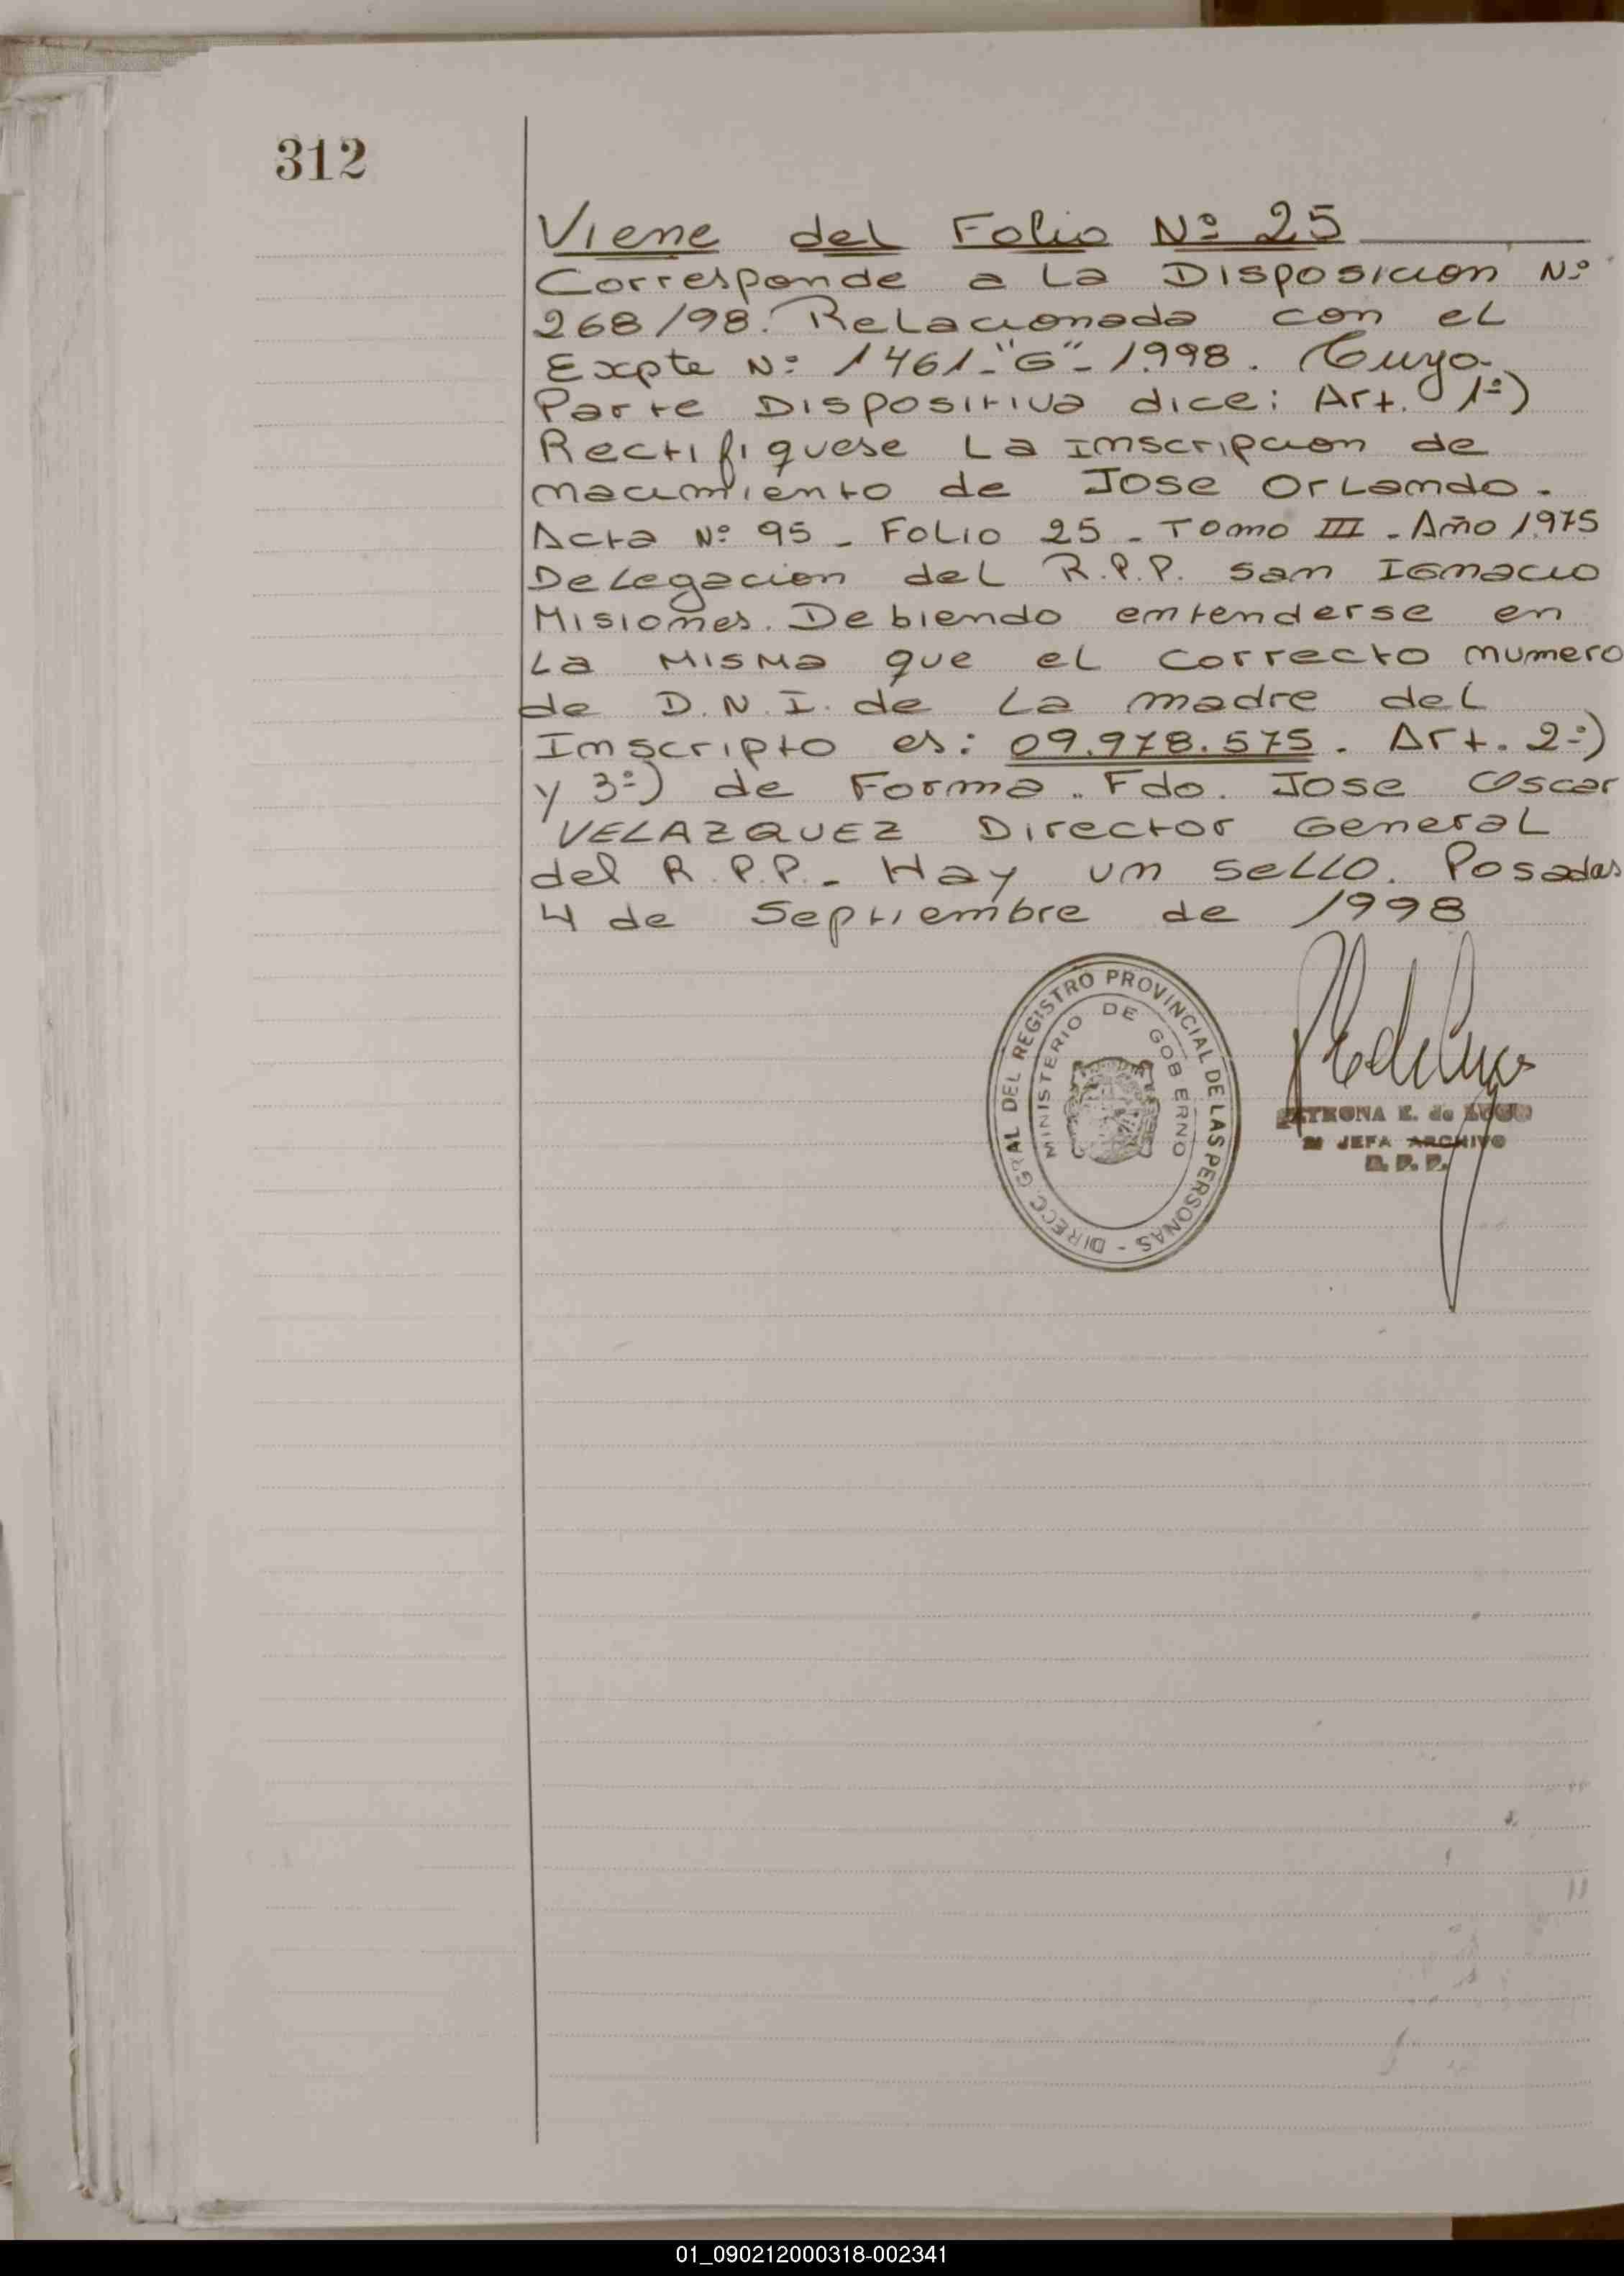 312
Viene del Folio Nº 25
Corresponde a La Disposicion Nº
268/98. Relacionada con el
Expte Nº 1461-"G"-1.998. Cuya
Parte Dispositiva dice: Art. 1º)
Rectifiquese La inscripcion de
nacimiento de Jose Orlando.
Acta Nº 95 - Folio 25 - Tomo III - Año 1.975
Delegacion del R.P.P. San Ignacio
Misiones. Debiendo entenderse en
La Misma que el correcto numero
de D.N.I. de La madre del
Inscripto es: 09.978.575. Art. 2º)
y 3º) de Forma. Fdo. Jose Oscar
VELAZQUEZ Director General
del R.P.P. - Hay un sello. Posadas
4 de Septiembre de 1998
DIRECC GRAL DEL REGISTRO PROVINCIAL DE LAS PERSONAS -
MINISTERIO DE GOBIERNO
PETRONA E. de LUGO
JEFA ARCHIVO
R. P. P.
01_090212000318-002341